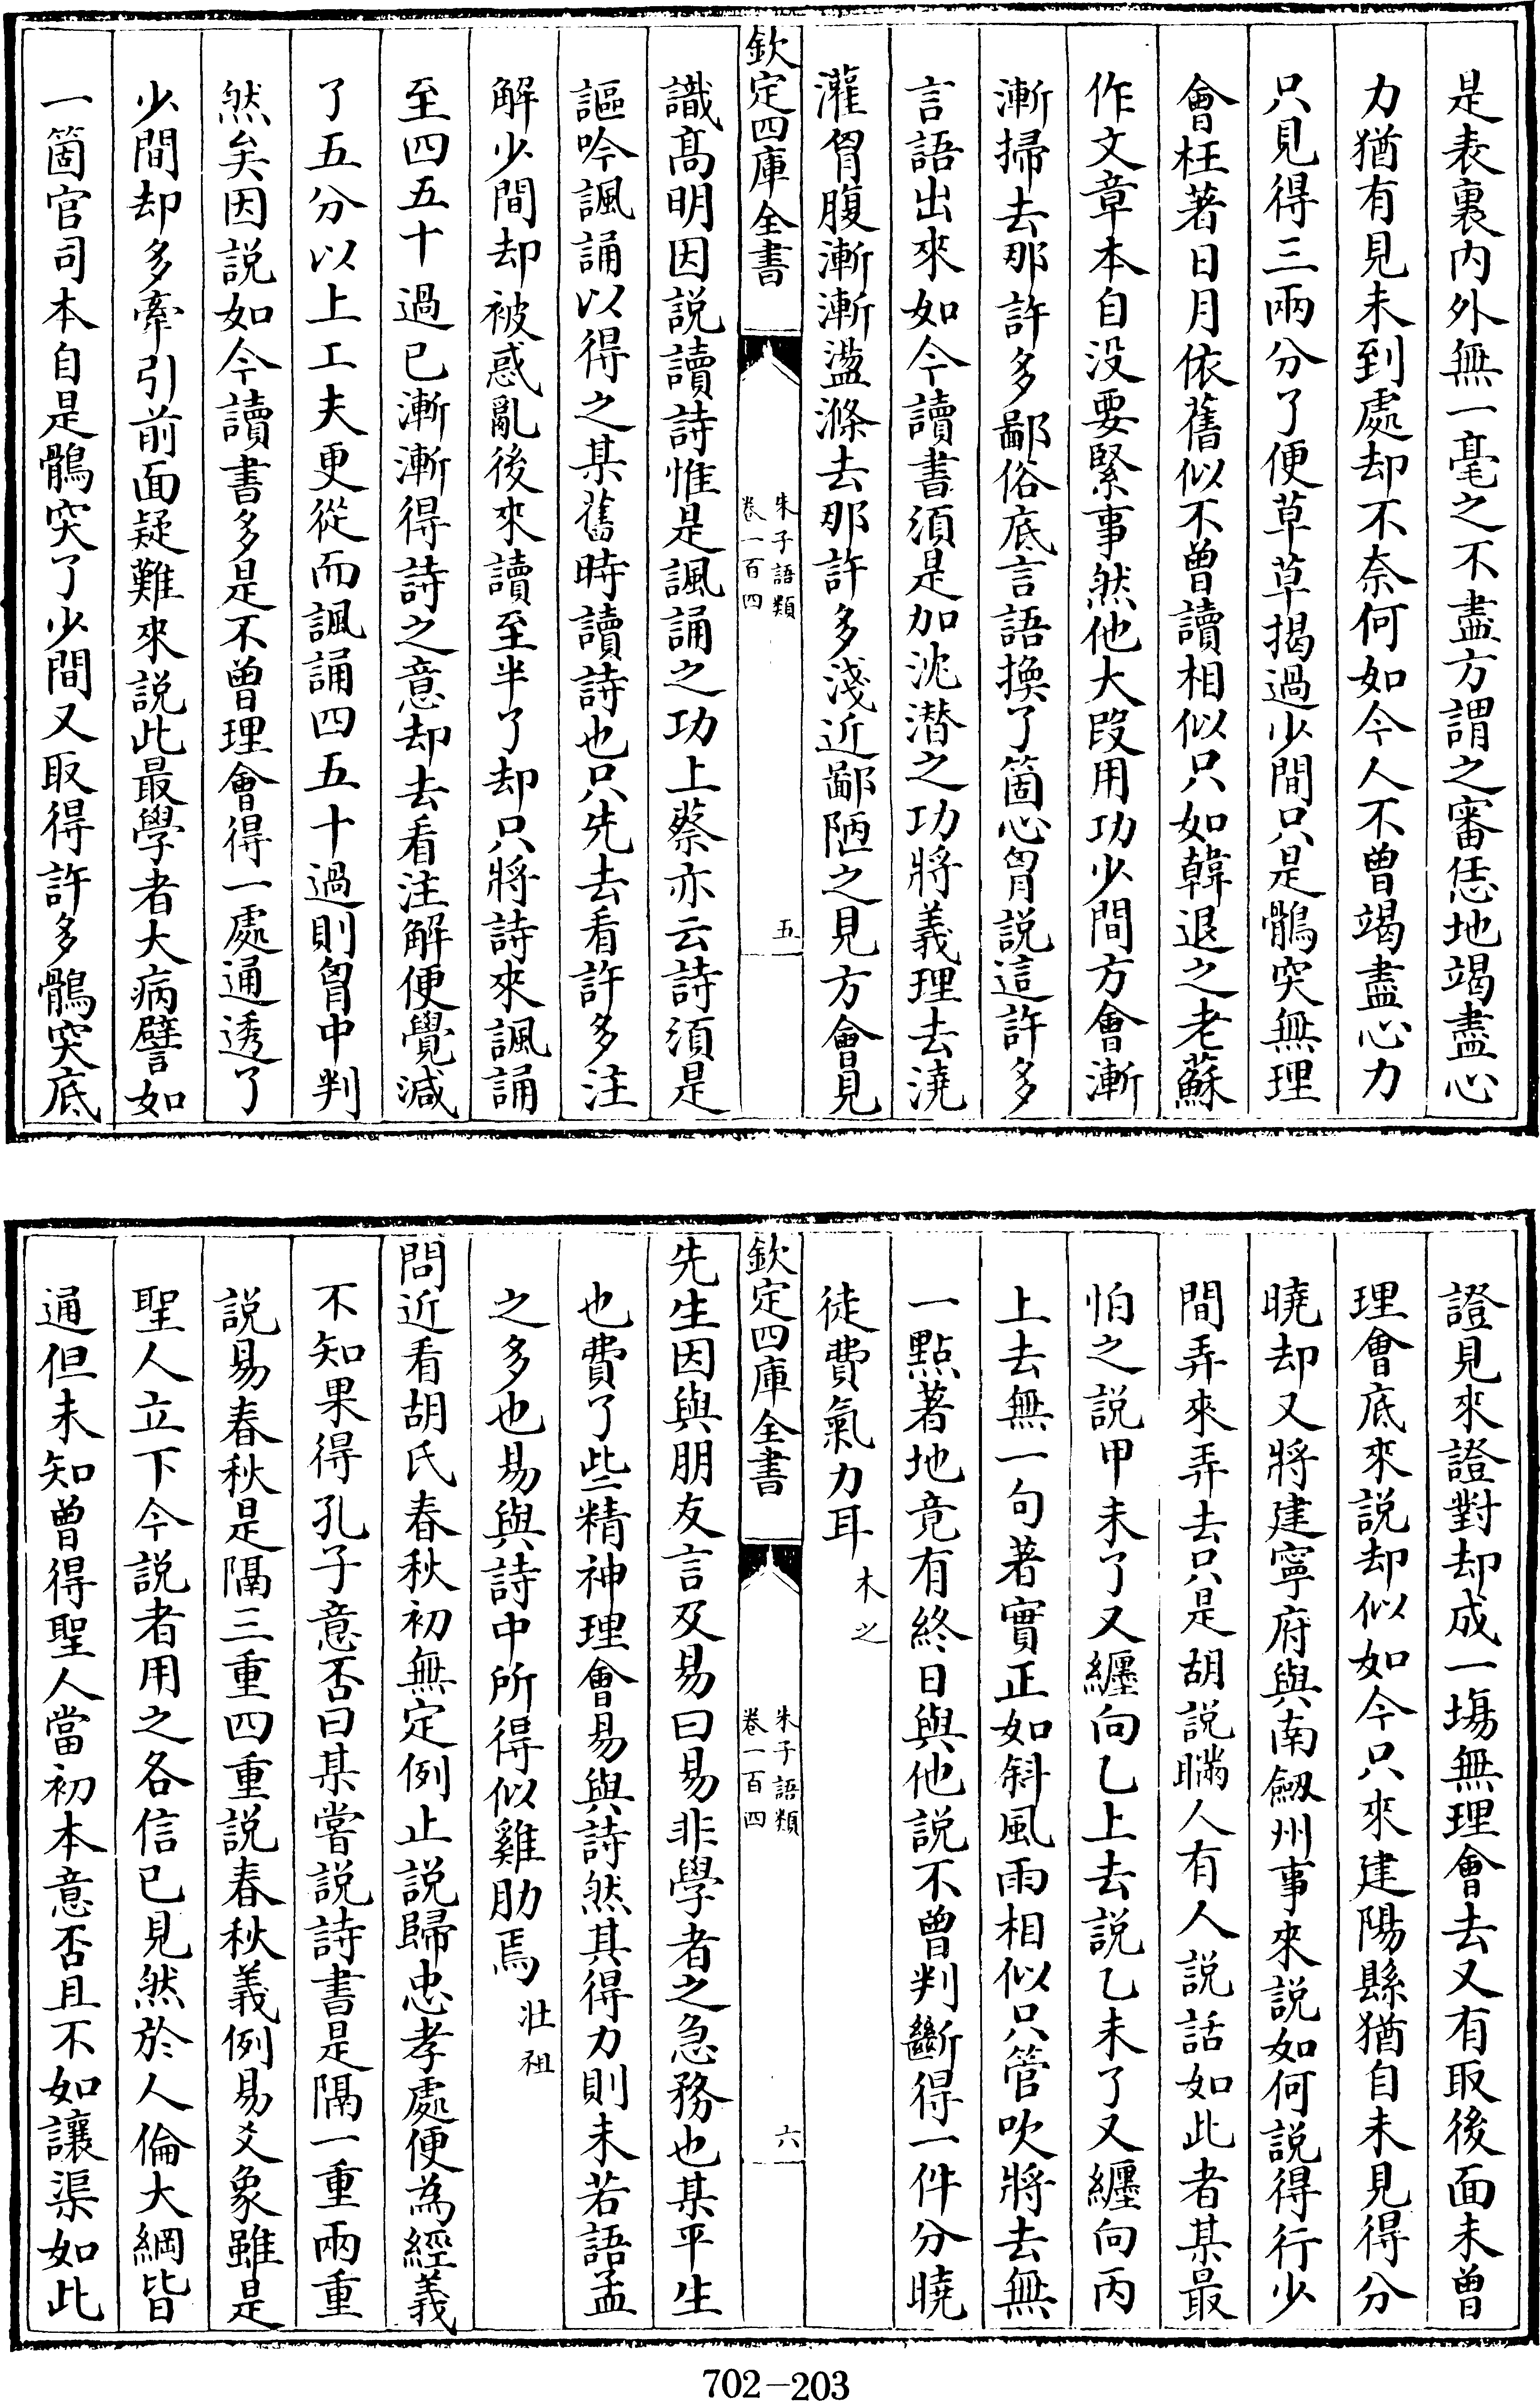 是表裏内外無一毫之不盡方謂之審恁地竭盡心
力猶有見未到處却不奈何如今人不曾竭盡心力
只見得三兩分了便草草揭過少間只是鶻突無理
會枉著日月依舊似不曾讀相似只如韓退之老蘇
作文章本自没要緊事然他大段用功少間方會漸
漸掃去那許多鄙俗底言語換了箇心胷説這許多
言語出來如今讀書須是加沈潛之功將義理去澆
灌胷腹漸漸盪滌去那許多淺近鄙陋之見方會見
欽定四庫全書
朱子語類
卷一百四
五
識髙明因説讀詩惟是諷誦之功上蔡亦云詩須是
謳吟諷誦以得之某舊時讀詩也只先去看許多注
解少間却被惑亂後來讀至半了却只將詩來諷誦
至四五十過已漸漸得詩之意却去看注解便覺減
了五分以上工夫更從而諷誦四五十過則胷中判
然矣因説如今讀書多是不曾理會得一處通透了
少間却多牽引前面疑難來説此最學者大病譬如
一箇官司本自是鶻突了少間又取得許多鶻突底
證見來證對却成一塲無理會去又有取後面未曾
理會底來説却似如今只來建陽縣猶自未見得分
曉却又將建寧府與南劔州事來説如何説得行少
間弄來弄去只是胡説瞞人有人説話如此者某最
怕之説甲未了又纏向乙上去説乙未了又纏向丙
上去無一句著實正如斜風雨相似只管吹將去無
一㸃著地竟有終日與他説不曾判斷得一件分曉
徒費氣力耳 木之
欽定四庫全書
朱子語類
卷一百四
六
先生因與朋友言及易曰易非學者之急務也某平生
也費了些精神理會易與詩然其得力則未若語孟
之多也易與詩中所得似雞肋焉 壯祖
問近看胡氏春秋初無定例止説歸忠孝處便為經義
不知果得孔子意否曰某嘗説詩書是隔一重兩重
説易春秋是隔三重四重説春秋義例易爻象雖是
聖人立下今説者用之各信已見然於人倫大綱皆
通但未知曾得聖人當初本意否且不如讓渠如此
702-203